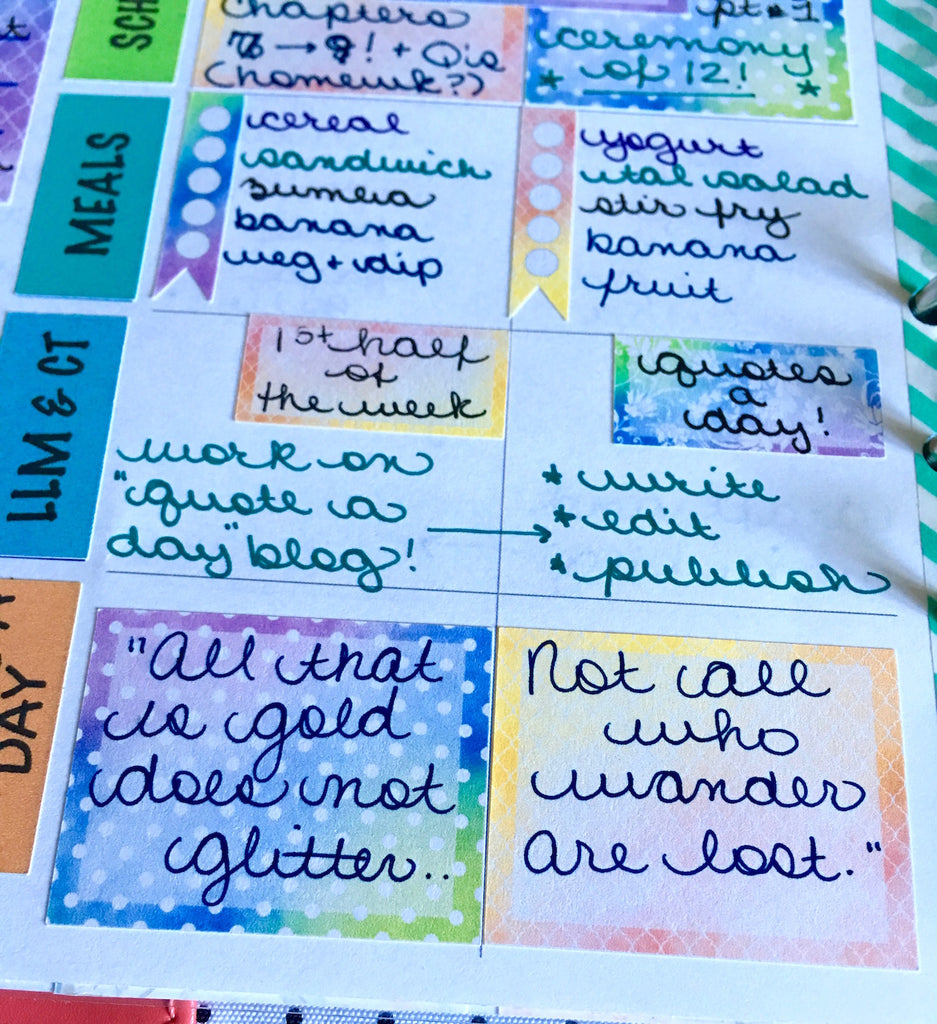 SCH
chapters
→ 9! + Q's
(homewk?)
pt. 1
ceremony
* of 12! *
MEALS
cereal
sandwich
banana
veg + dip
yogurt
salad
stir fry
banana
fruit
LLM & CT
1st half
of
the week
work on
"quote a
day" blog!
quotes
a
day!
* write
* edit
* publish
DAY
"All that
is gold
does not
glitter..
Not all
who
wander
are lost."